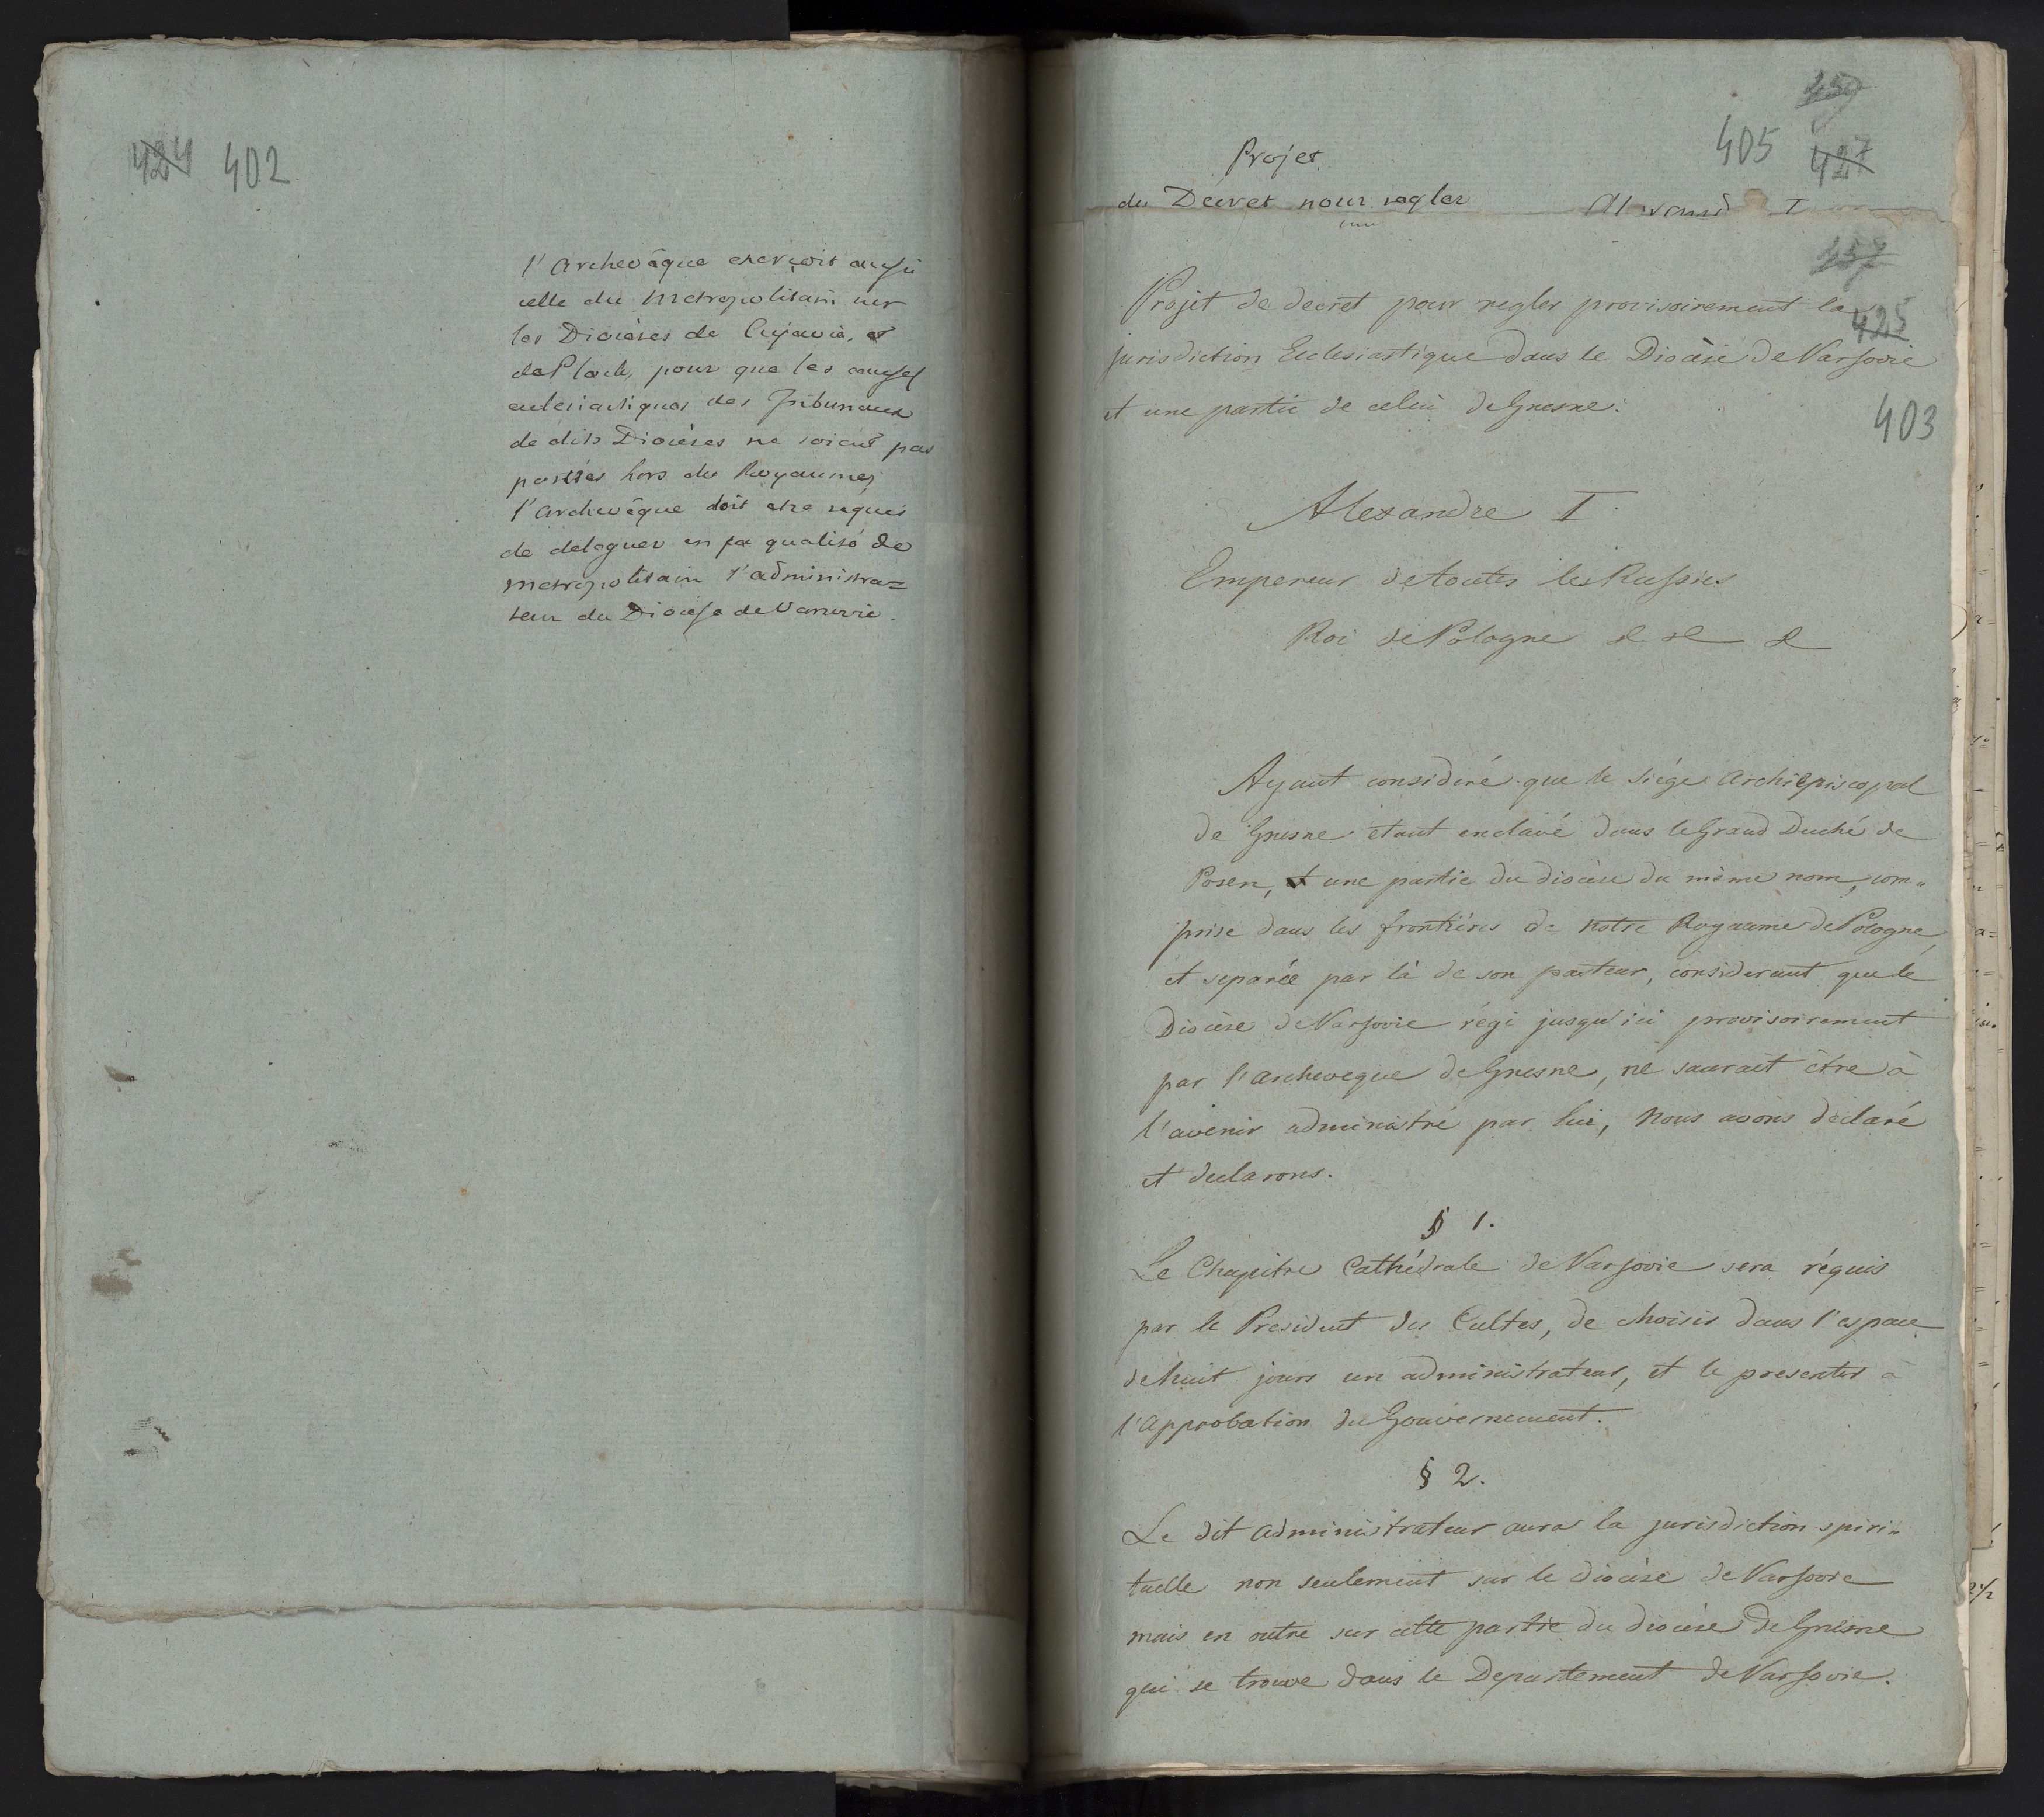 424 402
l'Archevêque exerçoit aussi
celle du Metropolitain sur
les Diocèses de Cujavie, et
de Plock, pour que les causes
eclesiastiques des Tribunaux
de dits Diocèses ne soient pas
portées hors du Royaume,
l'archevêque doit etre requis
de deleguer en sa qualité de
metropolitain l'administra=
teur du Diocese de Varsovie.
405 427
Projet
du Decret pour regler
425
Projet de decret pour regler provisoirement la
jurisdiction Eclesiastique dans le Diocèse de Varsovie
et une partie de celui de Gnesne.
403
Alexandre I.
Empereur de toutes les Russies
Roi de Pologne & & &
Ayant consideré que le siége Archiepiscopal
de Gnesne étant enclavé dans le Grand Duché de
Posen, et une partie du diocèse du même nom, com„
prise dans les frontières de notre Royaume de Pologne,
et separée par là de son pasteur, considerant que le
Diocèse de Varsovie régi jusqu'ici provisoirement
par l'archeveque de Gnesne, ne saurait être à
l'avenir administré par lui, Nous avons declaré
et declarons.
§ 1.
Le Chapitre Cathédrale de Varsovie sera réquis
par le President des Cultes, de choisir dans l'espace
de huit jours un administrateur, et le presenter à
l'Approbation du Gouvernement.
§ 2.
Le dit administrateur aura la jurisdiction spiri„
tuelle non seulement sur le diocèse de Varsovie
mais en outre sur cette partie du diocèse de Gnesne
qui se trouve dans le Departement de Varsovie.